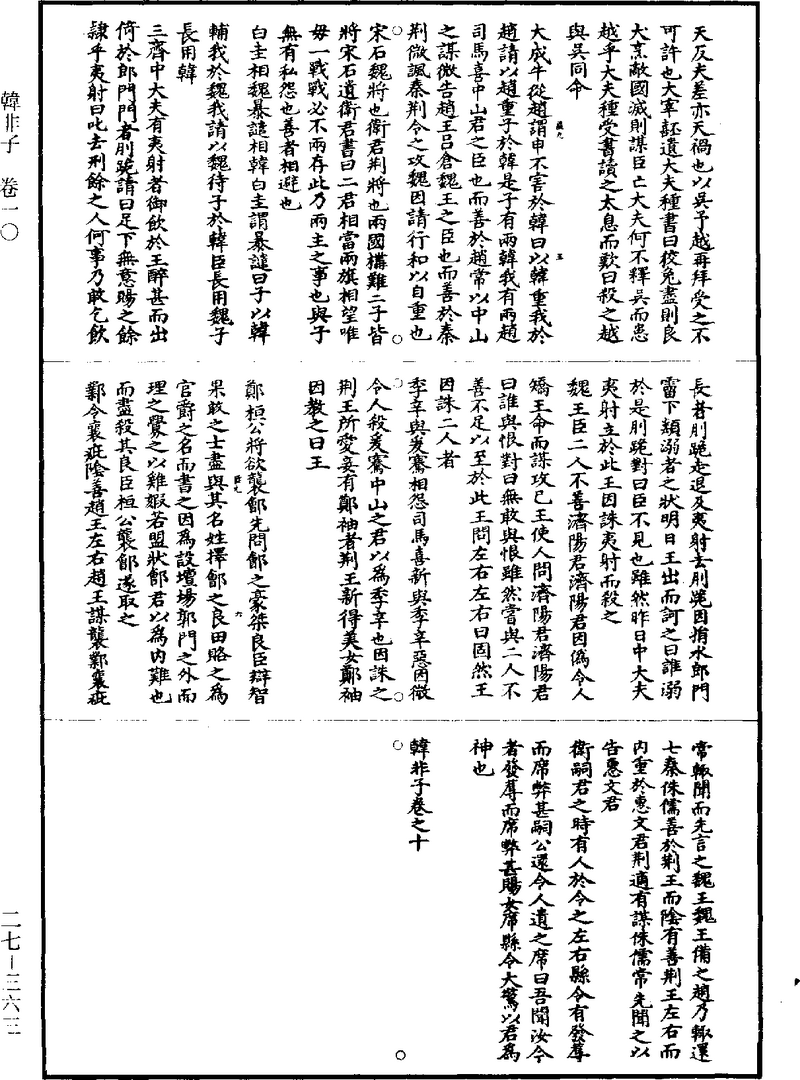 天反夫差亦天禍也以吳予越再拜受之不
可許也大宰嚭遺大夫種書曰狡兔盡則良
犬烹敵國滅則謀臣亡大夫何不釋吳而患
越乎大夫種受書讀之太息而歎曰殺之越
與吳同命
大成牛從趙謂申不害於韓曰以韓重我於
趙請以趙重子於韓是子有兩韓我有兩趙
司馬喜中山君之臣也而善於趙常以中山
之謀微告趙王呂倉魏王之臣也而善於秦
荆微諷秦荆令之攻魏因請行和以自重也
宋石魏將也衛君荆將也兩國構難二子皆
將宋石遺衛君書曰二君相當兩旗相望唯
毋一戰戰必不兩存此乃兩主之事也與子
無有私怨也善者相避也
白圭相魏暴譴相韓白圭謂暴譴曰子以韓
輔我於魏我請以魏待子於韓臣長用魏子
長用韓
三齊中大夫有夷射者御飲於王醉甚而出
倚於郎門門者刖跪請曰足下無意賜之餘
隷乎夷射曰叱去刑餘之人何事乃敢乞飲
長者刖跪走退及夷射去刖跪因捐水郎門
霤下類溺者之狀明日王出而訶之曰誰溺
於是刖跪對曰臣不見也雖然昨日中大夫
夷射立於此王因誅夷射而殺之
魏王臣二人不善濟陽君濟陽君因偽令人
矯王命而謀攻己王使人問濟陽君濟陽君
曰誰與恨對曰無敢與恨雖然嘗與二人不
善不足以至於此王問左右左右曰固然王
因誅二人者
季辛與爰騫相怨司馬喜新與季辛惡因微
令人殺爰騫中山之君以為季辛也因誅之
荆王所愛妾有鄭袖者荆王新得美女鄭袖
因教之曰王
鄭桓公將欲襲鄶先問鄶之豪桀良臣辯智
果敢之士盡與其名姓擇鄶之良田賂之為
官爵之名而書之因為設壇場郭門之外而
理之釁之以雞豭若盟狀鄶君以為内難也
而盡殺其良臣桓公襲鄶遂取之
鄴令襄疵陰善趙王左右趙王謀襲鄴襄疵
常輒聞而先言之魏王魏王備之趙乃輒還
七秦侏儒善於荆王而陰有善荆王左右而
内重於惠文君荆適有謀侏儒常先聞之以
告惠文君
衛嗣君之時有人於令之左右縣令有發蓐
而席弊甚嗣公還令人遺之席曰吾聞汝今
者發蓐而席弊甚賜女席縣令大驚以君為
神也
韓非子卷之十
韓非子 卷一〇
二七-三六三